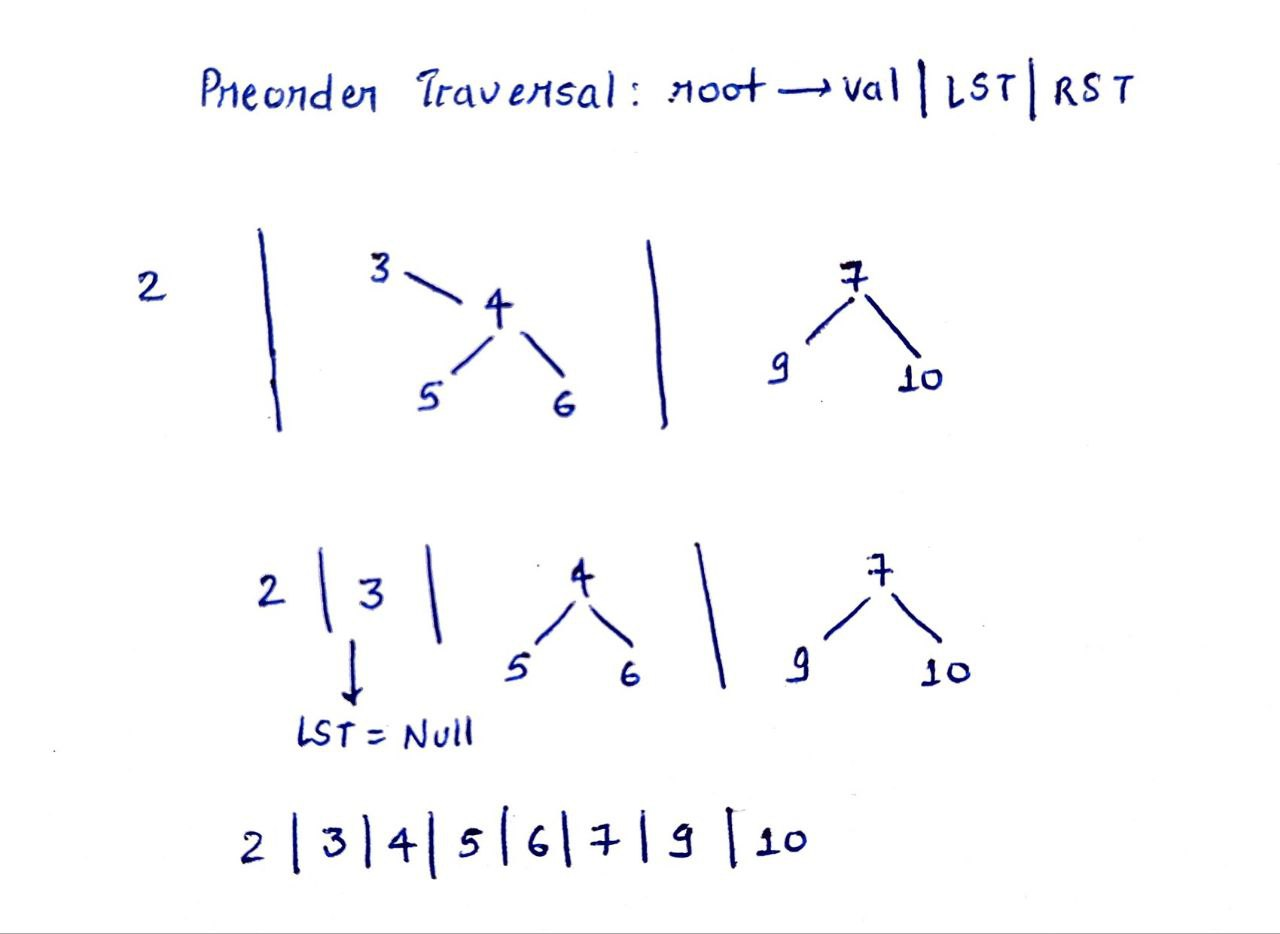 Preorder Traversal: root → val | LST | RST
2 | 3 4 5 6 | 7 9 10
2 | 3 | 4 5 6 | 7 9 10
LST = Null
2 | 3 | 4 | 5 | 6 | 7 | 9 | 10